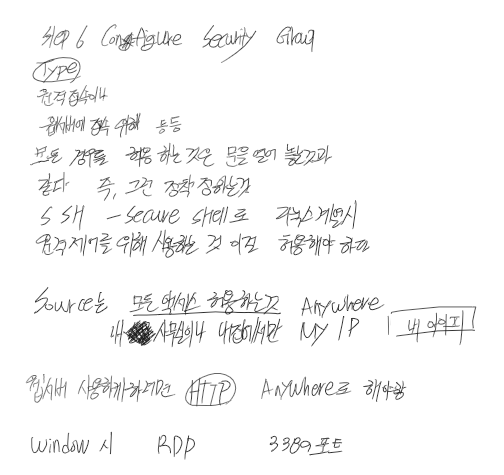 Step 6 Configure Security Group
Type
원격접속이나
웹서버에 접속 위해 등등
모든 경우를 허용하는 것은 문을 열어 놓는것과
같다 즉, 그런 정책 정하는것
SSH - Secure shell로 리눅스 계열시
원격제어를 위해 사용하는 것 이걸 허용해야 하고
Source는 모든 액세스 허용하는것 Anywhere
내 사무실이나 내집에서만 My IP 내 아이피
웹서버 사용하게 하려면 HTTP Anywhere로 해야함
Window 시 RDP 3389포트